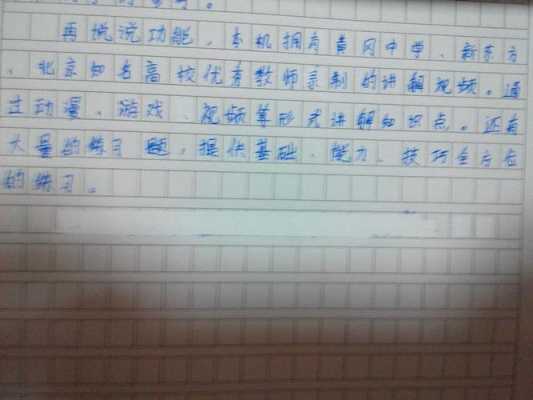 再说说功能，本机拥有黄冈中学、新东方
、北京知名高校优秀教师录制的讲解视频。通
过动漫、游戏、视频等形式讲解知识点。还有
大量的练习题，提供基础、能力、技巧全方位
的练习。